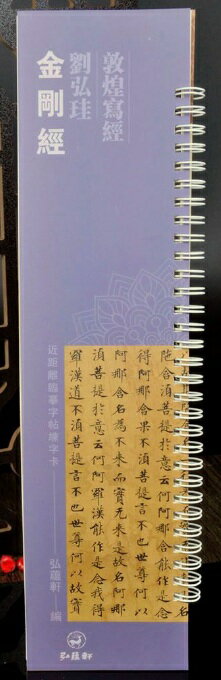 敦煌寫經
劉弘珪
金剛經
近距離臨摹字帖練字卡
弘蘊軒 編
陀含須菩提於意云何阿那含能作是念我
得阿那含果不須菩提言不也世尊何以故
阿那含名為不來而實无來是故名阿那
須菩提於意云何阿羅漢能作是念我得
羅漢道不須菩提言不也世尊何以故實
弘蘊軒